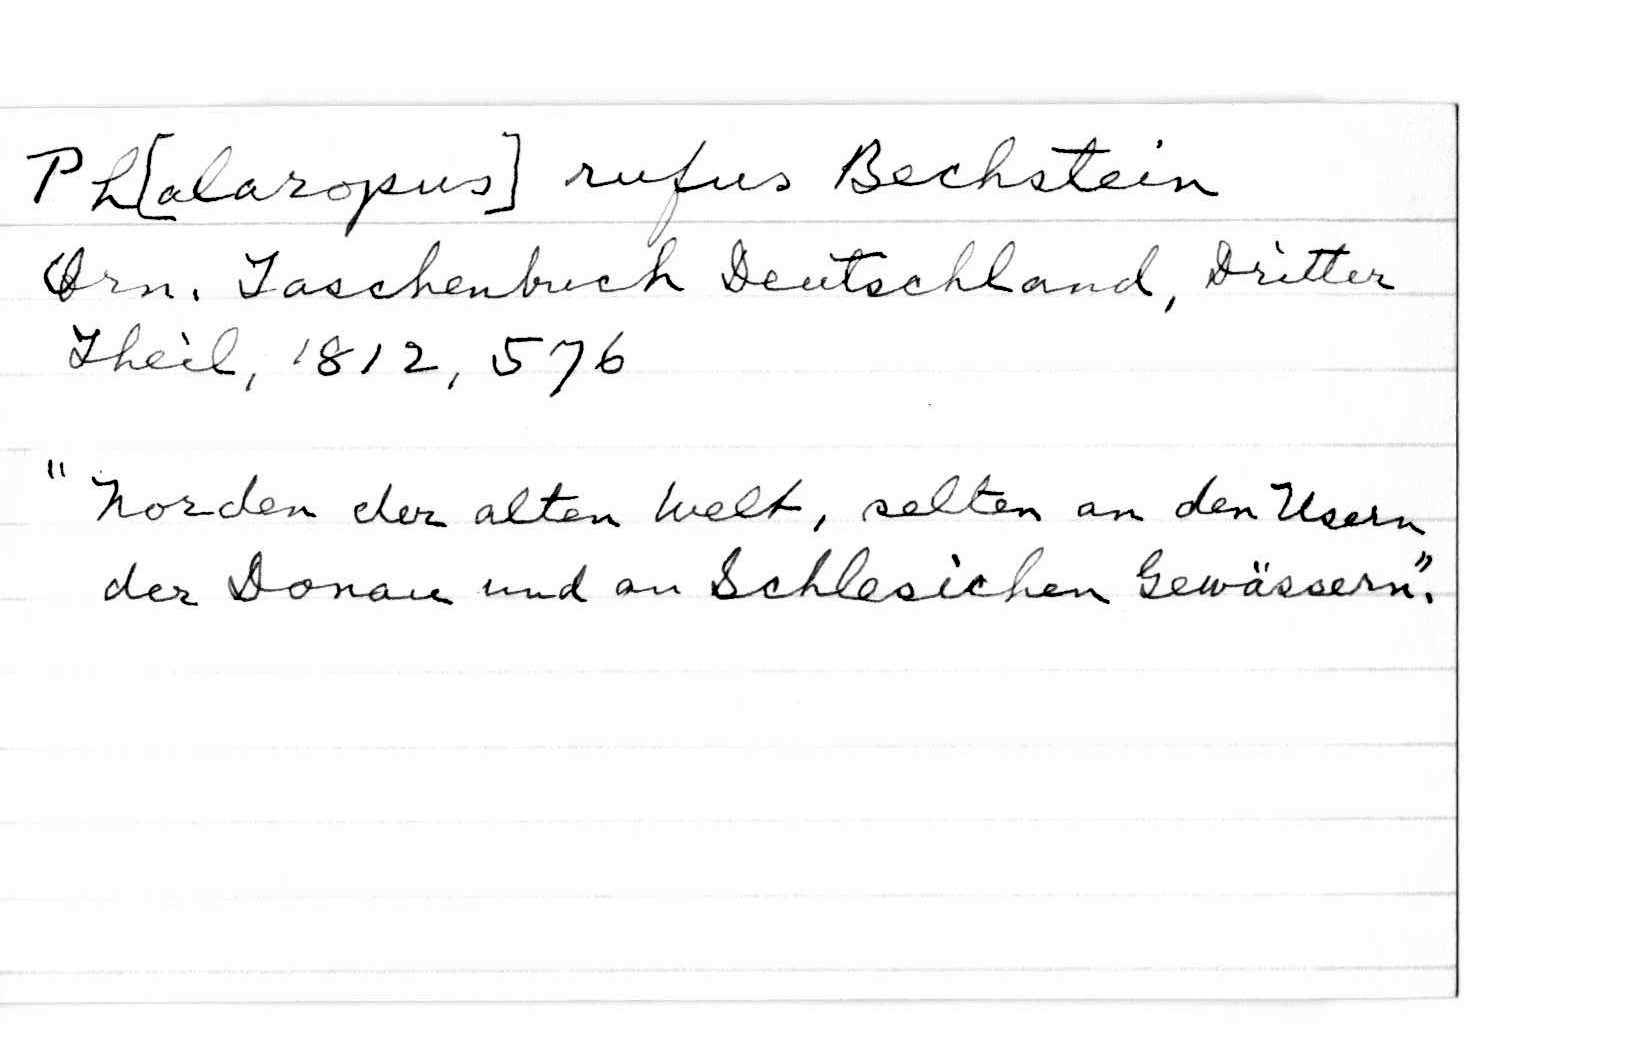 Ph[alaropus] rufus Bechstein
Orn. Taschenbuch Deutschland, Dritter
Theil, 1812, 576
"Norden der alten Welt, selten an den Usern
der Donau und an Schlesichen Gewässern".